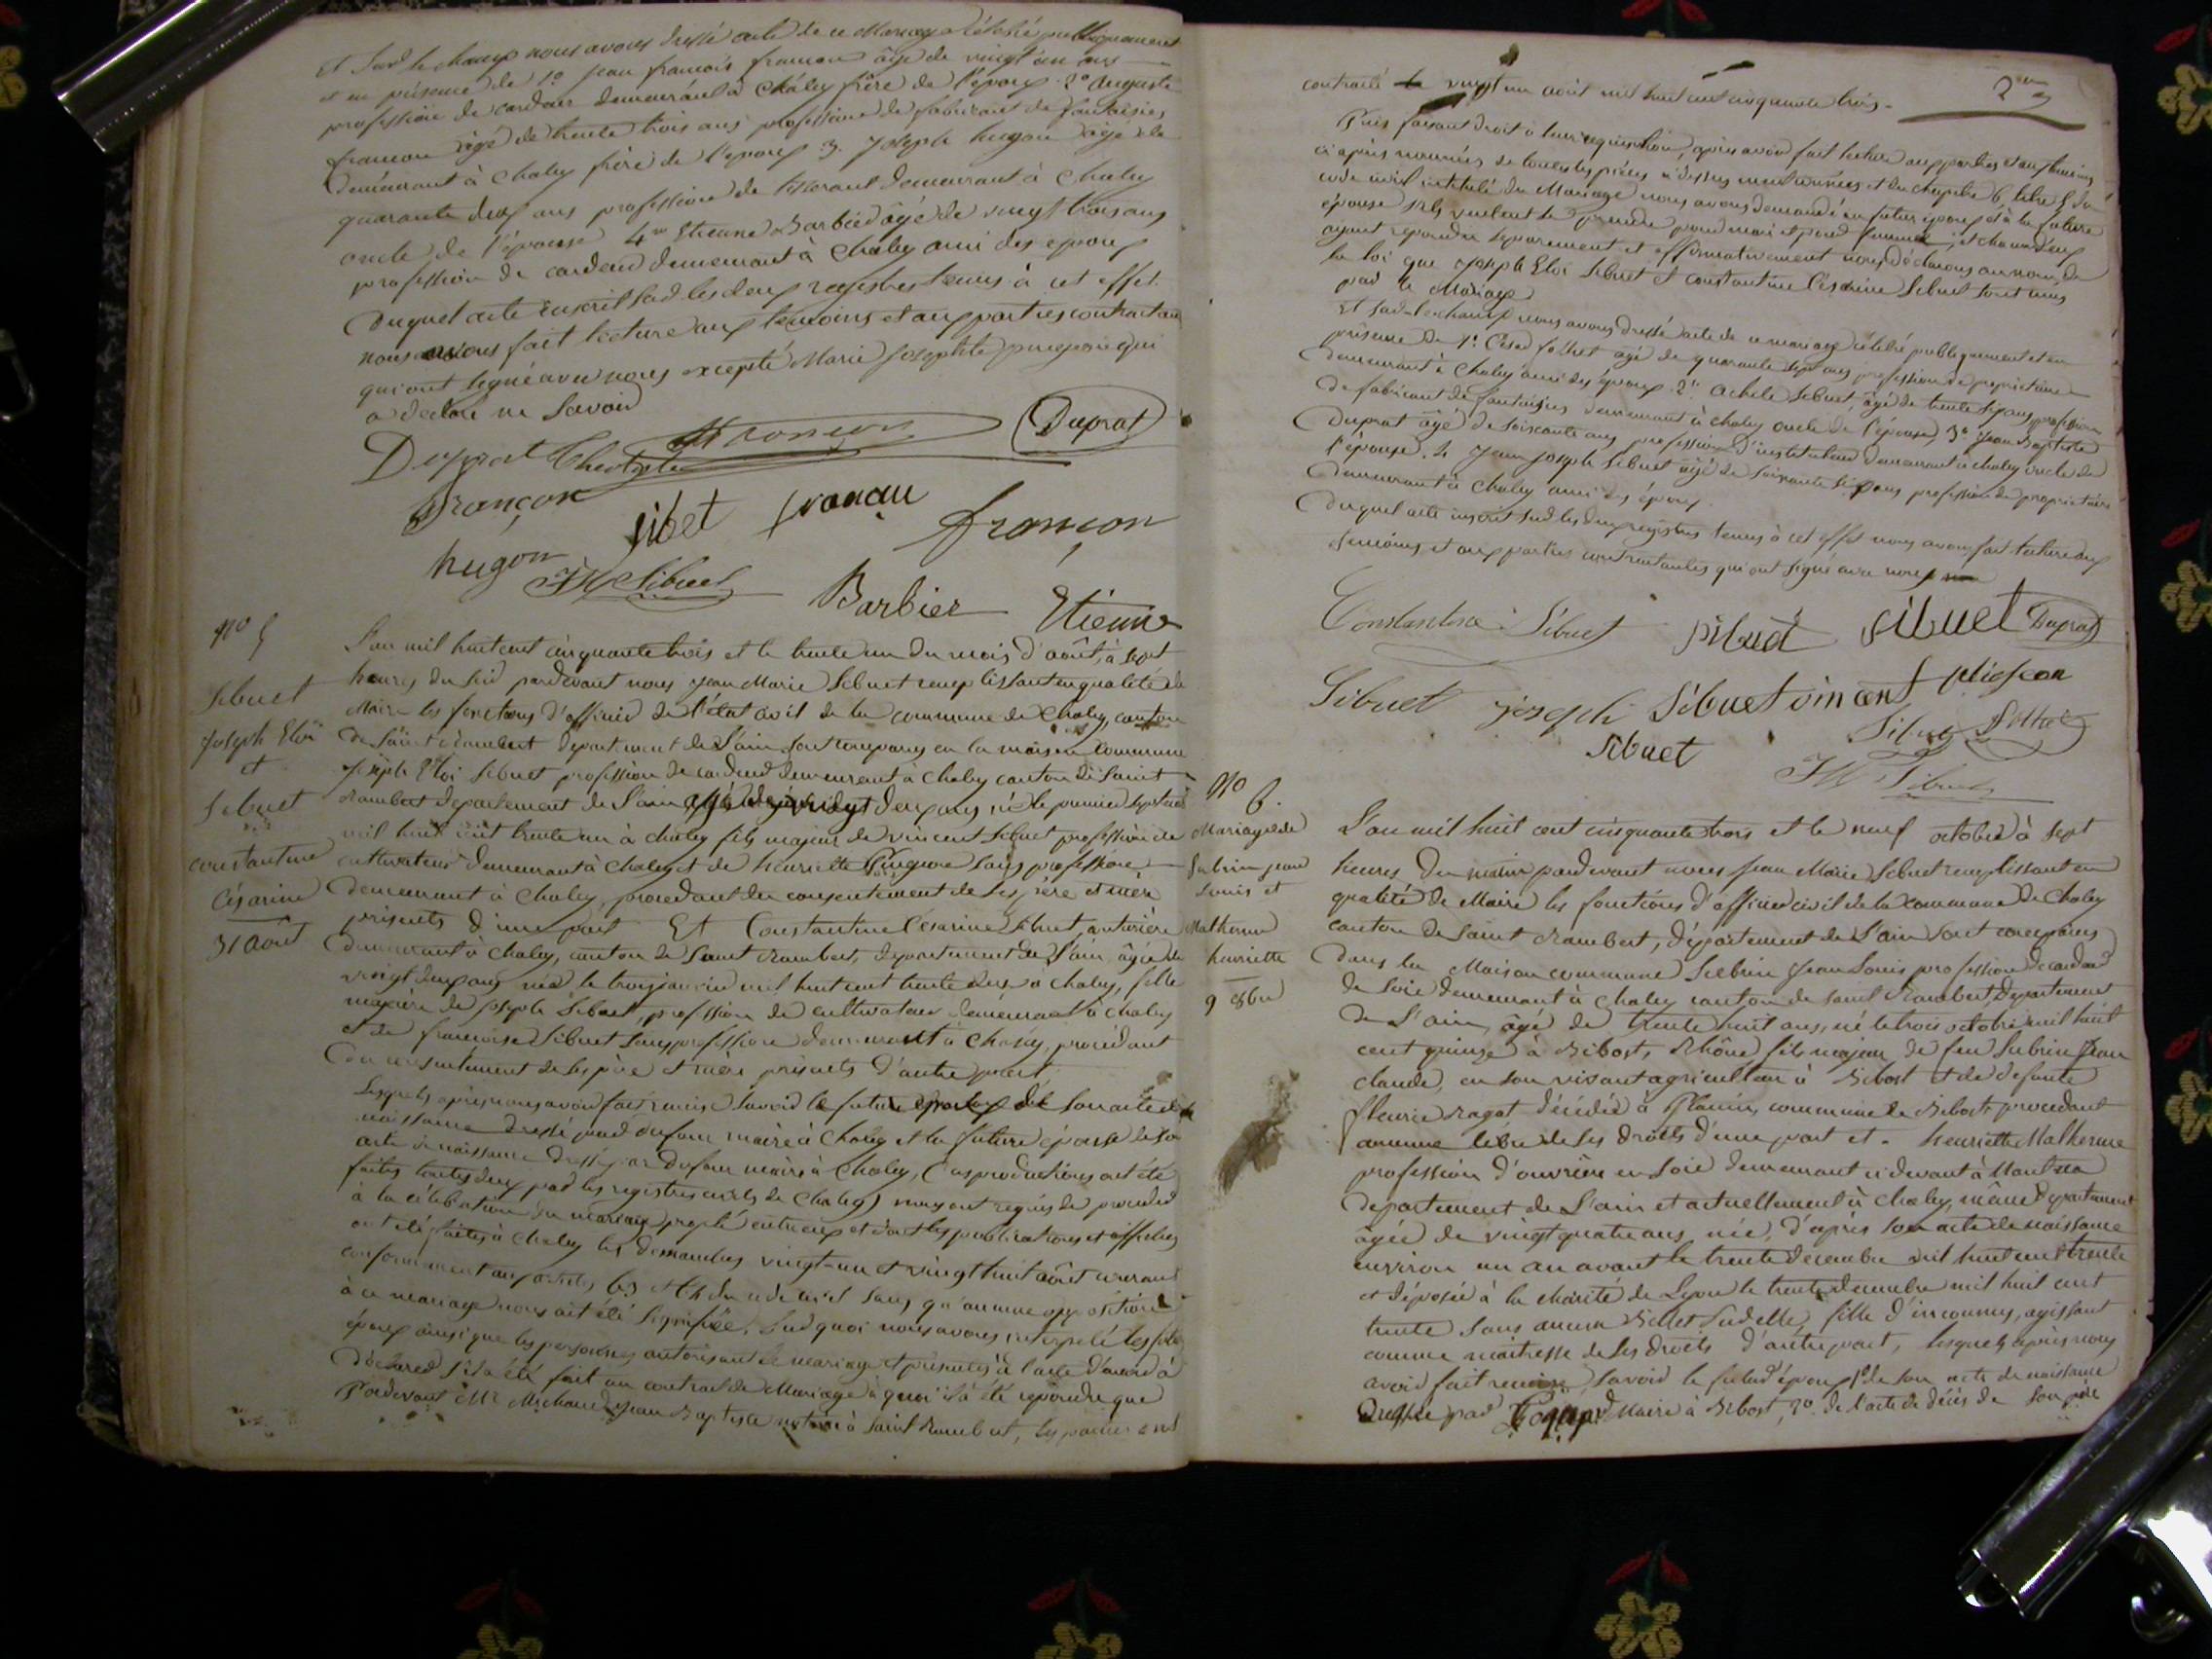 Et sur le champ nous avons dressé acte de ce Mariage célébré publiquement
et en présence de 1o Jean francois francon âgé de vingt un ans
profession de cardeur demeurant à Chaley frère de l'époux 2o Auguste
francon âgé de trente trois ans profession de fabricant de fantaisies
demeurant à Chaley frère de l'époux 3. Joseph hugon âgé de
quarante deux ans profession de tisserant demeurant à Chaley
oncle de l'épouse 4 Etienne Barbier âgé de vingt trois ans
profession de cardeur demeurant à Chaley ami des époux
Duquel acte inscrit sur les deux registres tenus à cet effet
nous avons fait lecture aux témoins et aux parties contractantes
qui ont signé avec nous excepté Marie Josephte qui
a déclaré ne savoir
Duprat Duprat
françon sibet francon
françon
hugon JM Sibuet Barbier Etienne
No 5
Sibuet
Joseph Eloi
et
Sibuet
constantine
Césarine
31 Août
L'an mil huit cent cinquante trois et le trente un du mois d'août, à sept
heures du soir pardevant nous Jean Marie Sibuet remplissant en qualité de
Maire les fonctions d'officier de l'état civil de la commune de Chaley canton
de Saint rambert département de l'ain sont comparus en la maison commune
Joseph Eloi Sibuet profession de cardeur demeurant à Chaley canton de Saint
rambert département de l'ain âgé de vingt deux ans né le premier septembre
mil huit cent trente un à chaley fils majeur de vincent Sibuet profession de
cultivateur demeurant à Chaley et de henriette sans profession
demeurant à Chaley, procedant du consentement de ses père et mère
présents d'une part Et Constantine Césarine Sibuet, couturière
demeurant à chaley, canton de Saint rambert, département de l'ain âgée de
vingt deux ans née le trois janvier mil huit cent trente deux à chaley, fille
majeure de Joseph Sibuet, profession de cultivateur demeurant à Chaley
et de francoise Sibuet sans profession demeurant à Chaley, procédant
du consentement de ses père et mère présents d'autre part.
Lesquels après nous avoir fait remise savoir le futur époux de son acte de
naissance dressé par dufour maire à Chaley et la future épouse de son
acte de naissance dressé par dufour maire à Chaley, (ces productions ont été
faites toutes deux par les registres civils de Chaley) nous ont requis de procéder
à la célébration du mariage projeté entr'eux et dont les publications et affiches
ont été faites à Chaley les dimanches vingt-un et vingt huit août courant
conformément aux articles 63 et 64 du code civil sans qu'aucune opposition
à ce mariage nous ait été signifiée. Sur quoi nous avons interpelé les futurs
époux ainsi que les personnes autorisant le mariage et présentes à l'acte d'avoir à
déclarer s'il a été fait un contrat de Mariage à quoi il a été répondu que
Pardevant Me Michaud Jean Baptiste notaire à Saint Rambert, les parties ont
contracté le vingt un août mil huit cent cinquante trois.
Puis faisant droit à leur réquisition, après avoir fait lecture aux parties et aux témoins
ci après nommés de toutes les pièces ci dessus mentionnées et du chapitre 6, titre 5 du
code civil intitulé du Mariage nous avons demandé au futur époux et à la future
épouse s'ils veulent se prendre pour mari et pour femme, et chacun d'eux
ayant répondu séparement et affirmativement nous déclarons au nom de
la loi que Joseph Eloi Sibuet et constantine Césarine Sibuet sont unis
par le Mariage
Et sur-le-champ nous avons dressé acte de ce mariage célébré publiquement et en
présence de 1o César folliet âgé de quarante sept ans profession de propriétaire
demeurant à Chaley ami des époux 2o Achile Sibuet, âgé de trente six ans profession
de fabricant de fantaisies demeurant à chaley oncle de l'épouse, 3o Jean Baptiste
Duprat âgé de soixante ans profession d'instituteur demeurant à chaley oncle de
l'épouse. 4 Jean Joseph Sibuet âgé de soixante six ans profession de propriétaire
demeurant à Chaley ami des époux.
Duquel acte inscrit sur les deux registres tenus à cet effet nous avons fait lecture aux
témoins et aux parties contractantes qui ont signé avec nous
Constantine Sibuet sibuet sibuet Duprat
Sibuet joseph Sibuet vincent
sibuet Sibuet Folliet
JM Sibuet
No 6.
Mariage de
Subrin jean
Louis et
Malherme
henriette
9 8bre
L'an mil huit cent cinquante trois et le neuf octobre à sept
heures du matin pardevant nous Jean Marie Sibuet remplissant en
qualité de Maire les fonctions d'officier civil de la commune de Chaley
canton de Saint Rambert, département de l'ain sont comparus
dans la Maison commune Subrin Jean Louis profession de cardeur
de soie demeurant à Chaley canton de saint Rambert, Département
de l'ain, âgé de trente huit ans, né le trois octobre mil huit
cent quinze à Bibost, Rhône fils majeur de feu Subrin Jean
claude, en son vivant agriculteur à Bibost et de défunte
fleurie ragot décédée à commune de Bibost, procedant
comme libre de ses droits d'une part et - henriette Malherme
profession d'ouvrière en soie demeurant ci devant à
département de l'ain et actuellement à Chaley, même département
âgée de vingt quatre ans née, d'après son acte de naissance
environ un an avant le trente décembre mil huit cent trente
et déposée à la charité de Lyon le trente décembre mil huit cent
trente sans aucun Billet sur elle, fille d'inconnus, agissant
comme maîtresse de ses droits d'autre part, lesquels après nous
avoir fait remise, savoir le futur époux 1o de son acte de naissance
Dressé par Maire à Bibost, 2o de l'acte de décès de son père